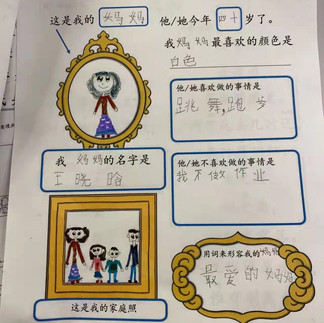 这是我的 妈妈
他/她今年 四十 岁了。
我 妈妈 最喜欢的颜色是
白色
他/她喜欢做的事情是
跳舞,跑步
我 妈妈的名字是
王晓
他/她不喜欢做的事情是
我不做作业
用词来形容我的妈妈
最爱的妈妈
这是我的家庭照